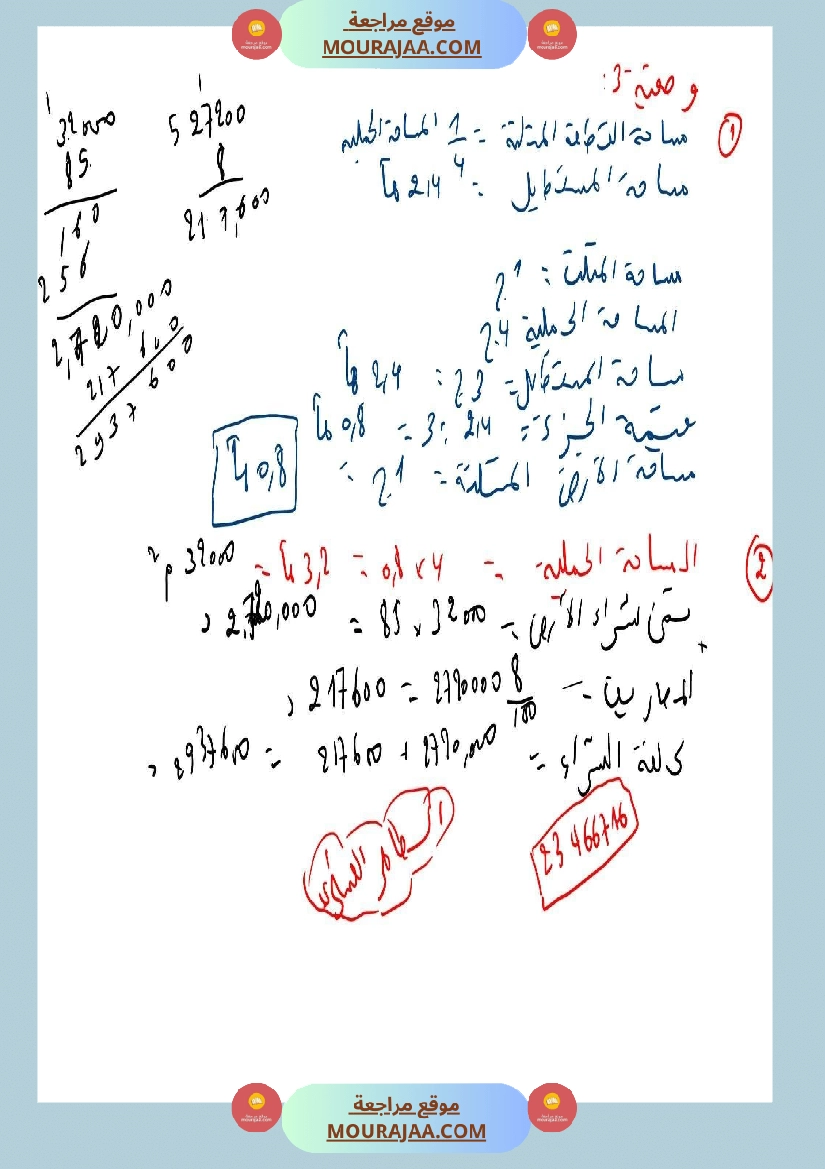 موقع مراجعة
MOURAJAA.COM
وضعية 3:
① مساحة القطعة المثلثة = 1/4 المساحة الجملية
مساحة المستطيل = 2,4 ها
مساحة المثلث = 1 ج
المساحة الجملية 4 ج
مساحة المستطيل = 3 ج = 2,4 ها
قيمة الجزء = 2,4 : 3 = 0,8 ها
مساحة الأرض المثلثة = 1 ج = 0,8 ها
② المساحة الجملية = 0,8 x 4 = 3,2 ها = 32000 م²
ثمن شراء الأرض = 32000 x 85 = 2,720,000 د
المصاريف = 2720000 8/100 = 217600 د
كلفة الشراء = 2720,000 + 217600 = 2937600 د
1
32000
85
160
256
2,720,000
217 600
2937 600
1
5 27200
8
217,600
23 466716
موقع مراجعة
MOURAJAA.COM